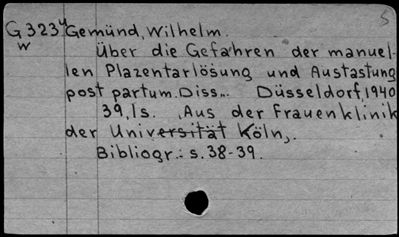 S
G323u Gemünd, Wilhelm.
w Über die Gefahren der manuel-
len Plazentarlösung und Austastung
post partum. Diss.. Düsseldorf, 1940
39,1s. Aus der Frauenklinik
der Universität Köln,.
Bibliogr.: s.38-39.